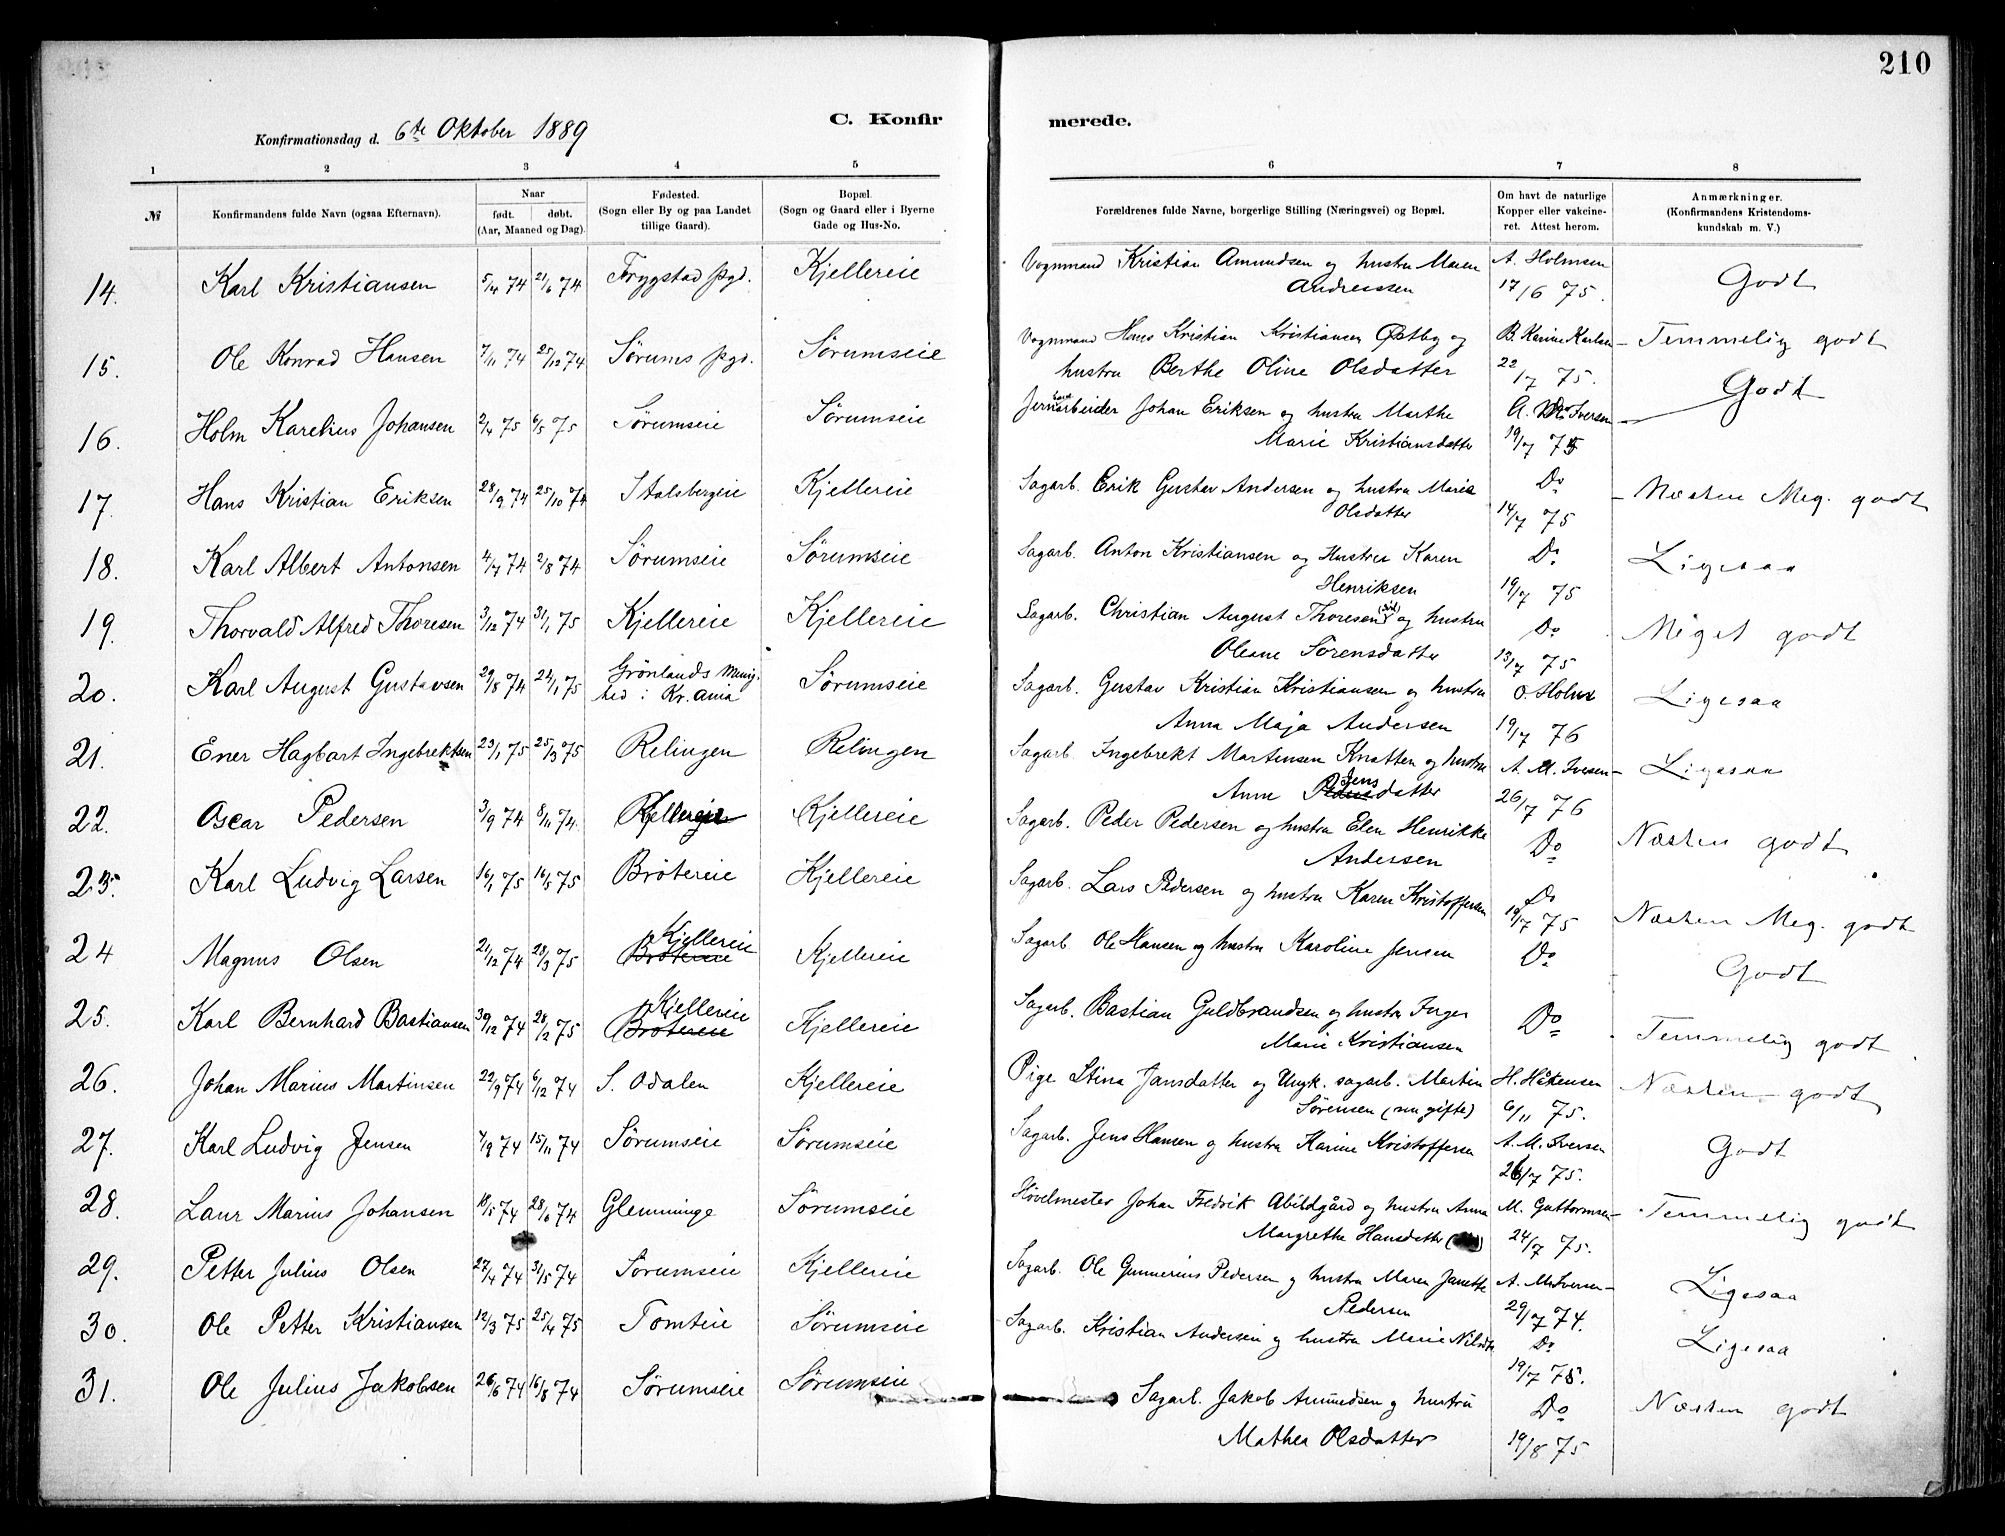 210
Konfirmationsdag d. 6te Oktober 1889
C. Konfirmerede.
1 2 3 4 5 6 7 8
№
Konfirmandens fulde Navn (ogsaa Efternavn).
Naar
født. døbt.
(Aar, Maaned og Dag).
Fødested.
(Sogn eller By og paa Landet
tillige Gaard).
Bopæl.
(Sogn og Gaard eller i Byerne
Gade og Hus-No.
Forældrenes fulde Navne, borgerlige Stilling (Næringsvei) og Bopæl.
Om havt de naturlige
Kopper eller vakcine-
ret. Attest herom.
Anmærkninger.
(Konfirmandens Kristendoms-
kundskab m. V.)
14. Karl Kristiansen 5/4 74 21/6 74 Trygstad pgd. Kjellereie Vognmand Kristian Amundsen og hustru Maren A. Holmsen Godt
Andreassen 17/6 75.
15. Ole Konrad Hansen 7/11 74 25/12 74 Sørums pgd. Sørumseie Vognmand Hans Kristian Kristiansen Østby og B. Karine Karlsen Temmelig godt
hustru Berthe Oline Olsdatter 22/7 75.
16. Holm Karelius Johansen 2/4 75 6/5 75 Sørumseie Sørumseie Jernarbeider Johan Eriksen og hustru Marthe A. M. Iversen Godt
Marie Kristiansdatter 19/7 75
17. Hans Kristian Eriksen 28/9 74 25/10 74 Stalsbergeie Kjellereie Sagarb. Erik Gustav Andersen og hustru Marie Do Næsten Meg. godt
Olsdatter 14/7 75
18. Karl Albert Antonsen 4/7 74 2/8 74 Sørumseie Sørumseie Sagarb. Anton Kristiansen og Hustru Karen Do Ligesaa
Henriksen 19/7 75
19. Thorvald Alfred Thoresen 3/12 74 31/1 75 Kjellereie Kjellereie Sagarb. Christian August Thoresen og hustru Do Meget godt
Oleane Sørensdatter 13/7 75
20. Karl August Gustavsen 29/8 74 24/1 75 Grönlands Menig- Sørumseie Sagarb. Gustav Kristian Kristiansen og hustru O. Holm Ligesaa
hed i Kr.ania Anna Maja Andersen 19/7 76
21. Ener Hagbart Ingebrektsen 23/1 75 25/3 75 Relingen Relingen Sagarb. Ingebrekt Martinsen Knatten og hustru A. M. Iversen Ligesaa
Anne Jensdatter 26/7 76
22. Oscar Pedersen 3/9 74 8/11 74. Kjellereie Kjellereie Sagarb. Peder Pedersen og hustru Elen Henrikke Do Næsten godt
Andersen
23. Karl Ludvig Larsen 16/1 75 16/5 75 Bröterie Kjellereie Sagarb. Lars Pedersen og hustru Karen Kristoffersen Do Næsten Meg. godt
19/7 75
24 Magnus Olsen 21/12 74 28/3 75 Kjellereie Kjellereie Sagarb Ole Hansen og hustru Karoline Jensen Do Godt
Bröterie
25. Karl Bernhard Bastiansen 30/12 74 28/2 75 Kjellereie Kjellereie Sagarb. Bastian Guldbrandsen og hustru Inger Do Temmelig godt
Bröterie Marie Kristiansen
26. Johan Marius Martinsen 22/9 74 6/12 74 S. Odalen Kjellereie Pige Stina Jansdatter og Ungk. sagarb. Martin H. Håkensen Næsten godt
Sørensen (nu gifte) 6/11 75.
27. Karl Ludvig Jensen 7/9 74 15/11 74 Sørumseie Sørumseie Sagarb. Jens Hansen og hustru Karine Kristoffersen A. M. Iversen Godt
26/7 75.
28. Laur Marius Johansen 18/5 74 28/6 74 Glemminge Sørumseie Høvelmester Johan Fredrik Abildgård og hustru Anna M. Guttormsen Temmelig godt
Margrethe Hansdatter 24/7 75.
29. Petter Julius Olsen 27/4 74 31/5 74 Sørumseie Kjellereie Sagarb. Ole Gunnerius Pedersen og hustru Maren Janette A. M. Iversen Ligesaa
Pedersen 29/7 74.
30. Ole Petter Kristiansen 12/3 75 25/4 75 Tomteie Sørumseie Sagarb. Kristian Andersen og hustru Marie Nilsdtr Do Ligesaa
19/7 75.
31. Ole Julius Jakobsen 26/6 74 16/8 74 Sørumseie Sørumseie Sagarb. Jakob Amundsen og hustru Do Næsten godt
Mathea Olsdatter 19/8 75